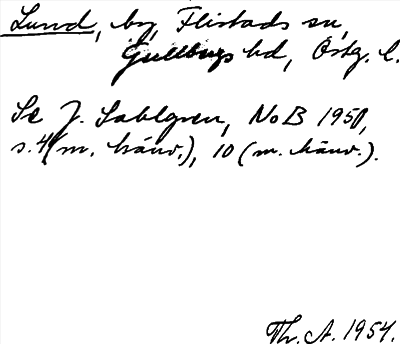 Lund, by, Flistads sn,
Gullbergs hd, Östg. l.
Se J. Sahlgren, NoB 1950,
s. 4 (m. hänv.), 10 (m. hänv.).
Th. A. 1954.